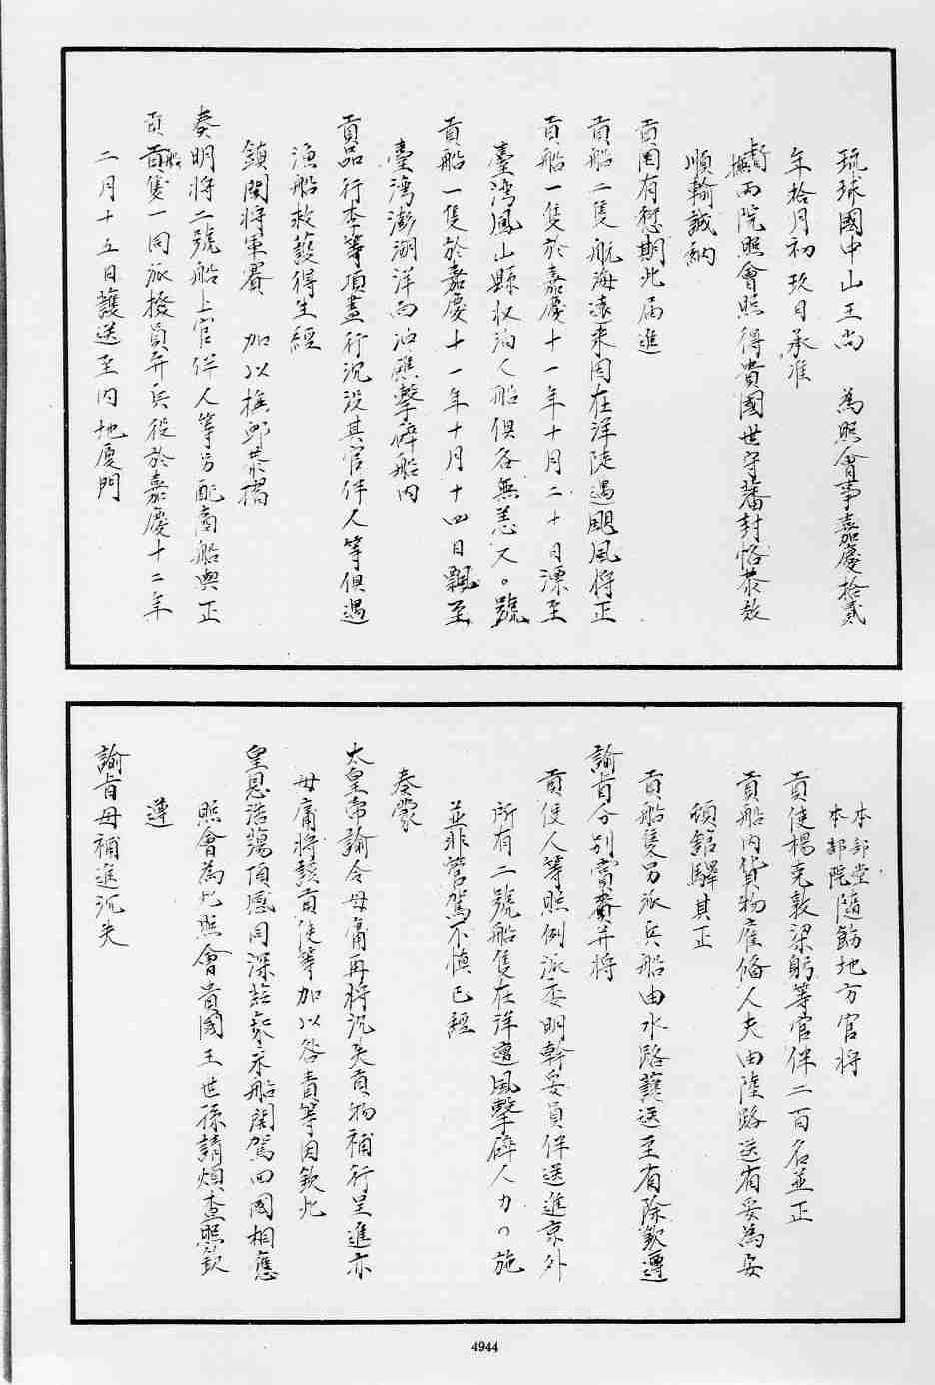 琉球國中山王尚　為照會事嘉慶拾貳
年拾月初玖日承准
督撫兩院照會照得貴國世守藩封恪恭效
順輸誠納
貢因有懋期此屆進
貢船二隻航海遠來因在洋陡遇颶風將正
貢船一隻於嘉慶十一年十月二十日漂至
臺灣鳳山縣收泊人船俱各無恙又。號
貢船一隻於嘉慶十一年十月十四日飄至
臺灣澎湖洋面汕礁擊碎船內
貢品行李等項盡行沉沒其官伴人等俱遇
漁船救護得生經
鎮閩將軍賽　加以撫卹恭摺
奏明將二號船上官伴人等另配商船與正
貢船隻一同派撥員弁兵役於嘉慶十二年
二月十五日護送至內地廈門
本部堂
本部院隨飭地方官將
貢使楊克敦梁躬等官伴二百名並正
貢船內貨物雇備人夫由陸路送省妥為安
頓館驛其正
貢船隻另派兵船由水路護送至省除欽遵
諭旨分別賞賚并將
貢使人等照例派委明幹妥員伴送進京外
所有二號船隻在洋遭風擊碎人力。施
並非營駕不慎已經
奏蒙
太皇帝諭令毋庸再將沉失貢物補行呈進亦
毋庸將該貢使等加以咎責等因欽此
皇恩浩蕩頂感同深茲來船開駕回國相應
照會為此照會貴國王世孫請煩查照欽
遵
諭旨毋補進沉失
4944